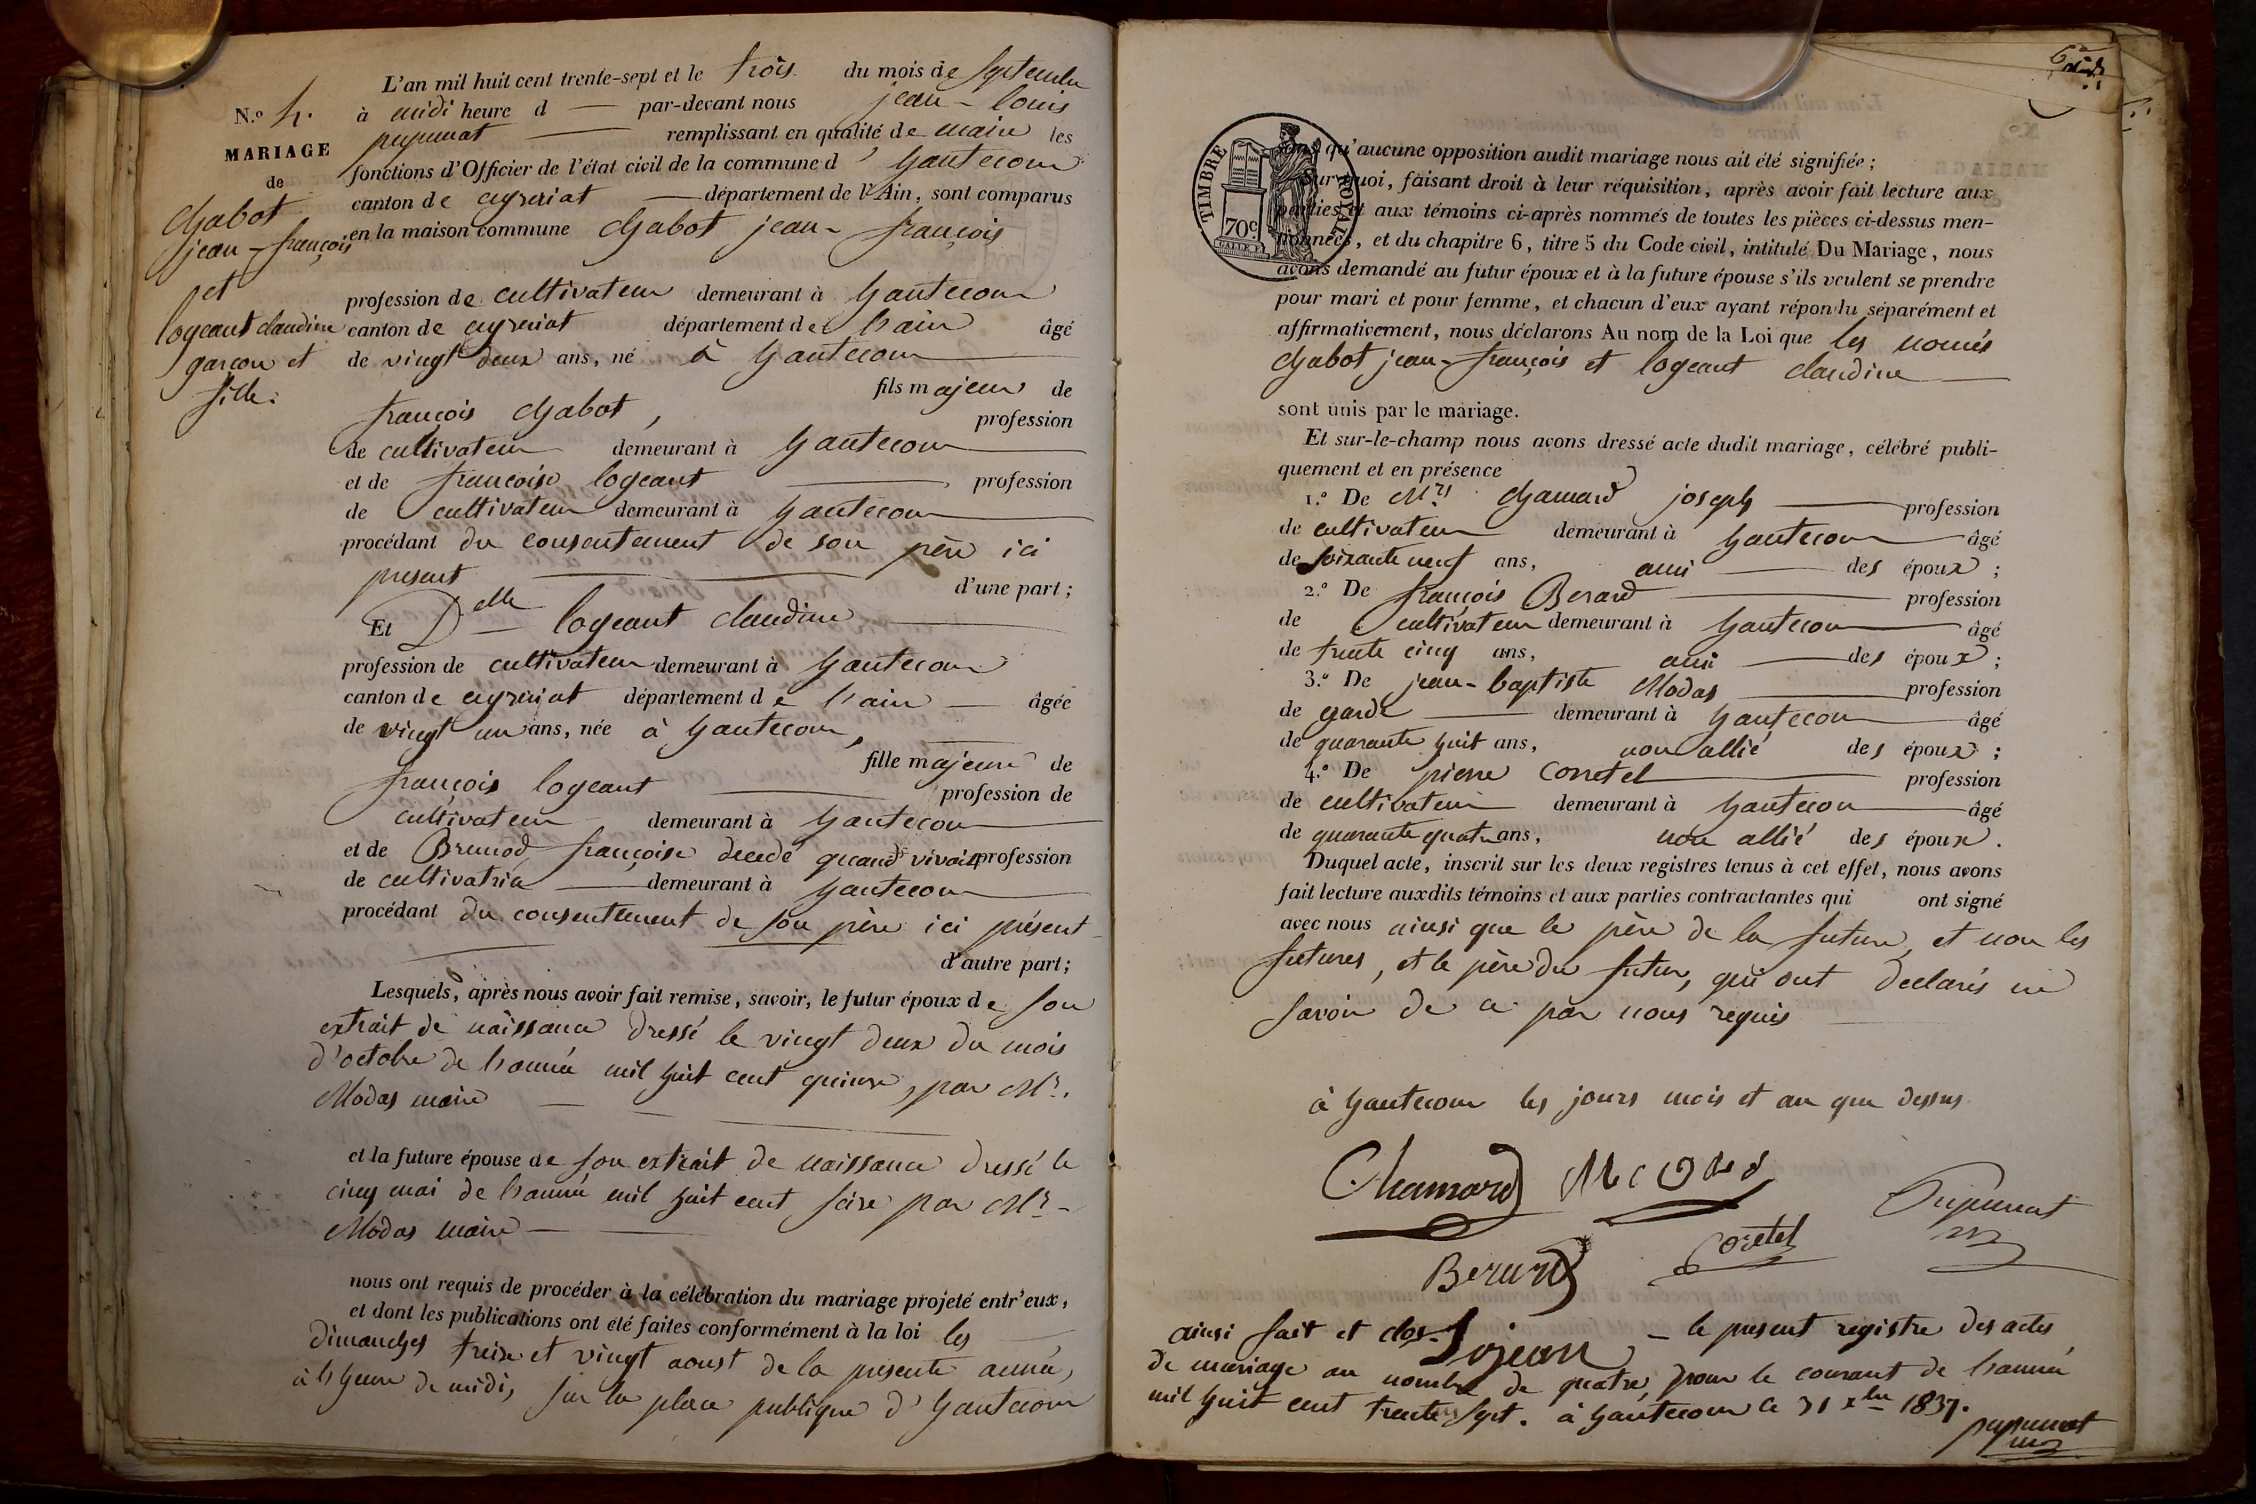 N.º 4.
MARIAGE
de
chabot
jean-françois
et
logeant claudine
garçon et
fille.
L'an mil huit cent trente-sept et le trois du mois de septembre
à midi heure d — par-devant nous jean-louis
pupunat — remplissant en qualité de maire les
fonctions d'Officier de l'état civil de la commune d' hautecour
canton de ceyzeriat — département de l'Ain, sont comparus
en la maison commune chabot jean-françois
profession de cultivateur demeurant à hautecour
canton de ceyzeriat département de l'ain âgé
de vingt deux ans, né à hautecour
fils majeur de
françois chabot, profession
de cultivateur demeurant à hautecour
et de francoise logeant — profession
de cultivateur demeurant à hautecour
procédant du consentement de son père ici
present — d'une part;
Et Delle logeant claudine
profession de cultivateur demeurant à hautecour
canton de ceyzeriat département de l'ain — âgée
de vingt un ans, née à hautecour,
fille majeure de
françois logeant — profession de
cultivateur demeurant à hautecour
et de Brunod françoise decedé quand vivait profession
de cultivatrice — demeurant à hautecour
procédant du consentement de son père ici présent
d'autre part;
Lesquels, après nous avoir fait remise, savoir, le futur époux de son
extrait de naissance dressé le vingt deux du mois
d'octobre de l'année mil huit cent quinze, par Mr.
Modas maire
et la future épouse de son extrait de naissance dressé le
cinq mai de l'année mil huit cent seize par Mr
Modas maire
nous ont requis de procéder à la célébration du mariage projeté entr'eux,
et dont les publications ont été faites conformément à la loi les
dimanches treize et vingt aoust de la presente année,
à l'heure de midi, sur la place publique d'hautecour
TIMBRE ROYAL
70c
qu'aucune opposition audit mariage nous ait été signifiée;
Sur quoi, faisant droit à leur réquisition, après avoir fait lecture aux
parties et aux témoins ci-après nommés de toutes les pièces ci-dessus men-
tionnées, et du chapitre 6, titre 5 du Code civil, intitulé Du Mariage, nous
avons demandé au futur époux et à la future épouse s'ils veulent se prendre
pour mari et pour femme, et chacun d'eux ayant répondu séparément et
affirmativement, nous déclarons Au nom de la Loi que les només
chabot jean-françois et logeant claudine
sont unis par le mariage.
Et sur-le-champ nous avons dressé acte dudit mariage, célébré publi-
quement et en présence
1.º De Mrs chamard joseph — profession
de cultivateur demeurant à hautecour — âgé
de soixante neuf ans, ami — des époux;
2.º De françois Berard — profession
de cultivateur demeurant à hautecour — âgé
de trente cinq ans, ami — des époux;
3.º De jean-baptiste Modas — profession
de garde — demeurant à hautecour — âgé
de quarante huit ans, non allié des époux;
4.º De pierre Corretel — profession
de cultivateur demeurant à hautecour — âgé
de quarante quatre ans, non allié des époux.
Duquel acte, inscrit sur les deux registres tenus à cet effet, nous avons
fait lecture auxdits témoins et aux parties contractantes qui ont signé
avec nous ainsi que le père de la future, et non les
futures, et le père du futur, qui ont declarés ne
savoir de ce par nous requis
à hautecour les jours mois et an que dessus
Chamard Modas
Pupunat
Coretel
Berard
Lojean
ainsi fait et clos — le present registre des actes
de mariage au nombre de quatre, pour le courant de l'année
mil huit cent trente sept. à hautecour ce 31 xbre 1837.
pupunat